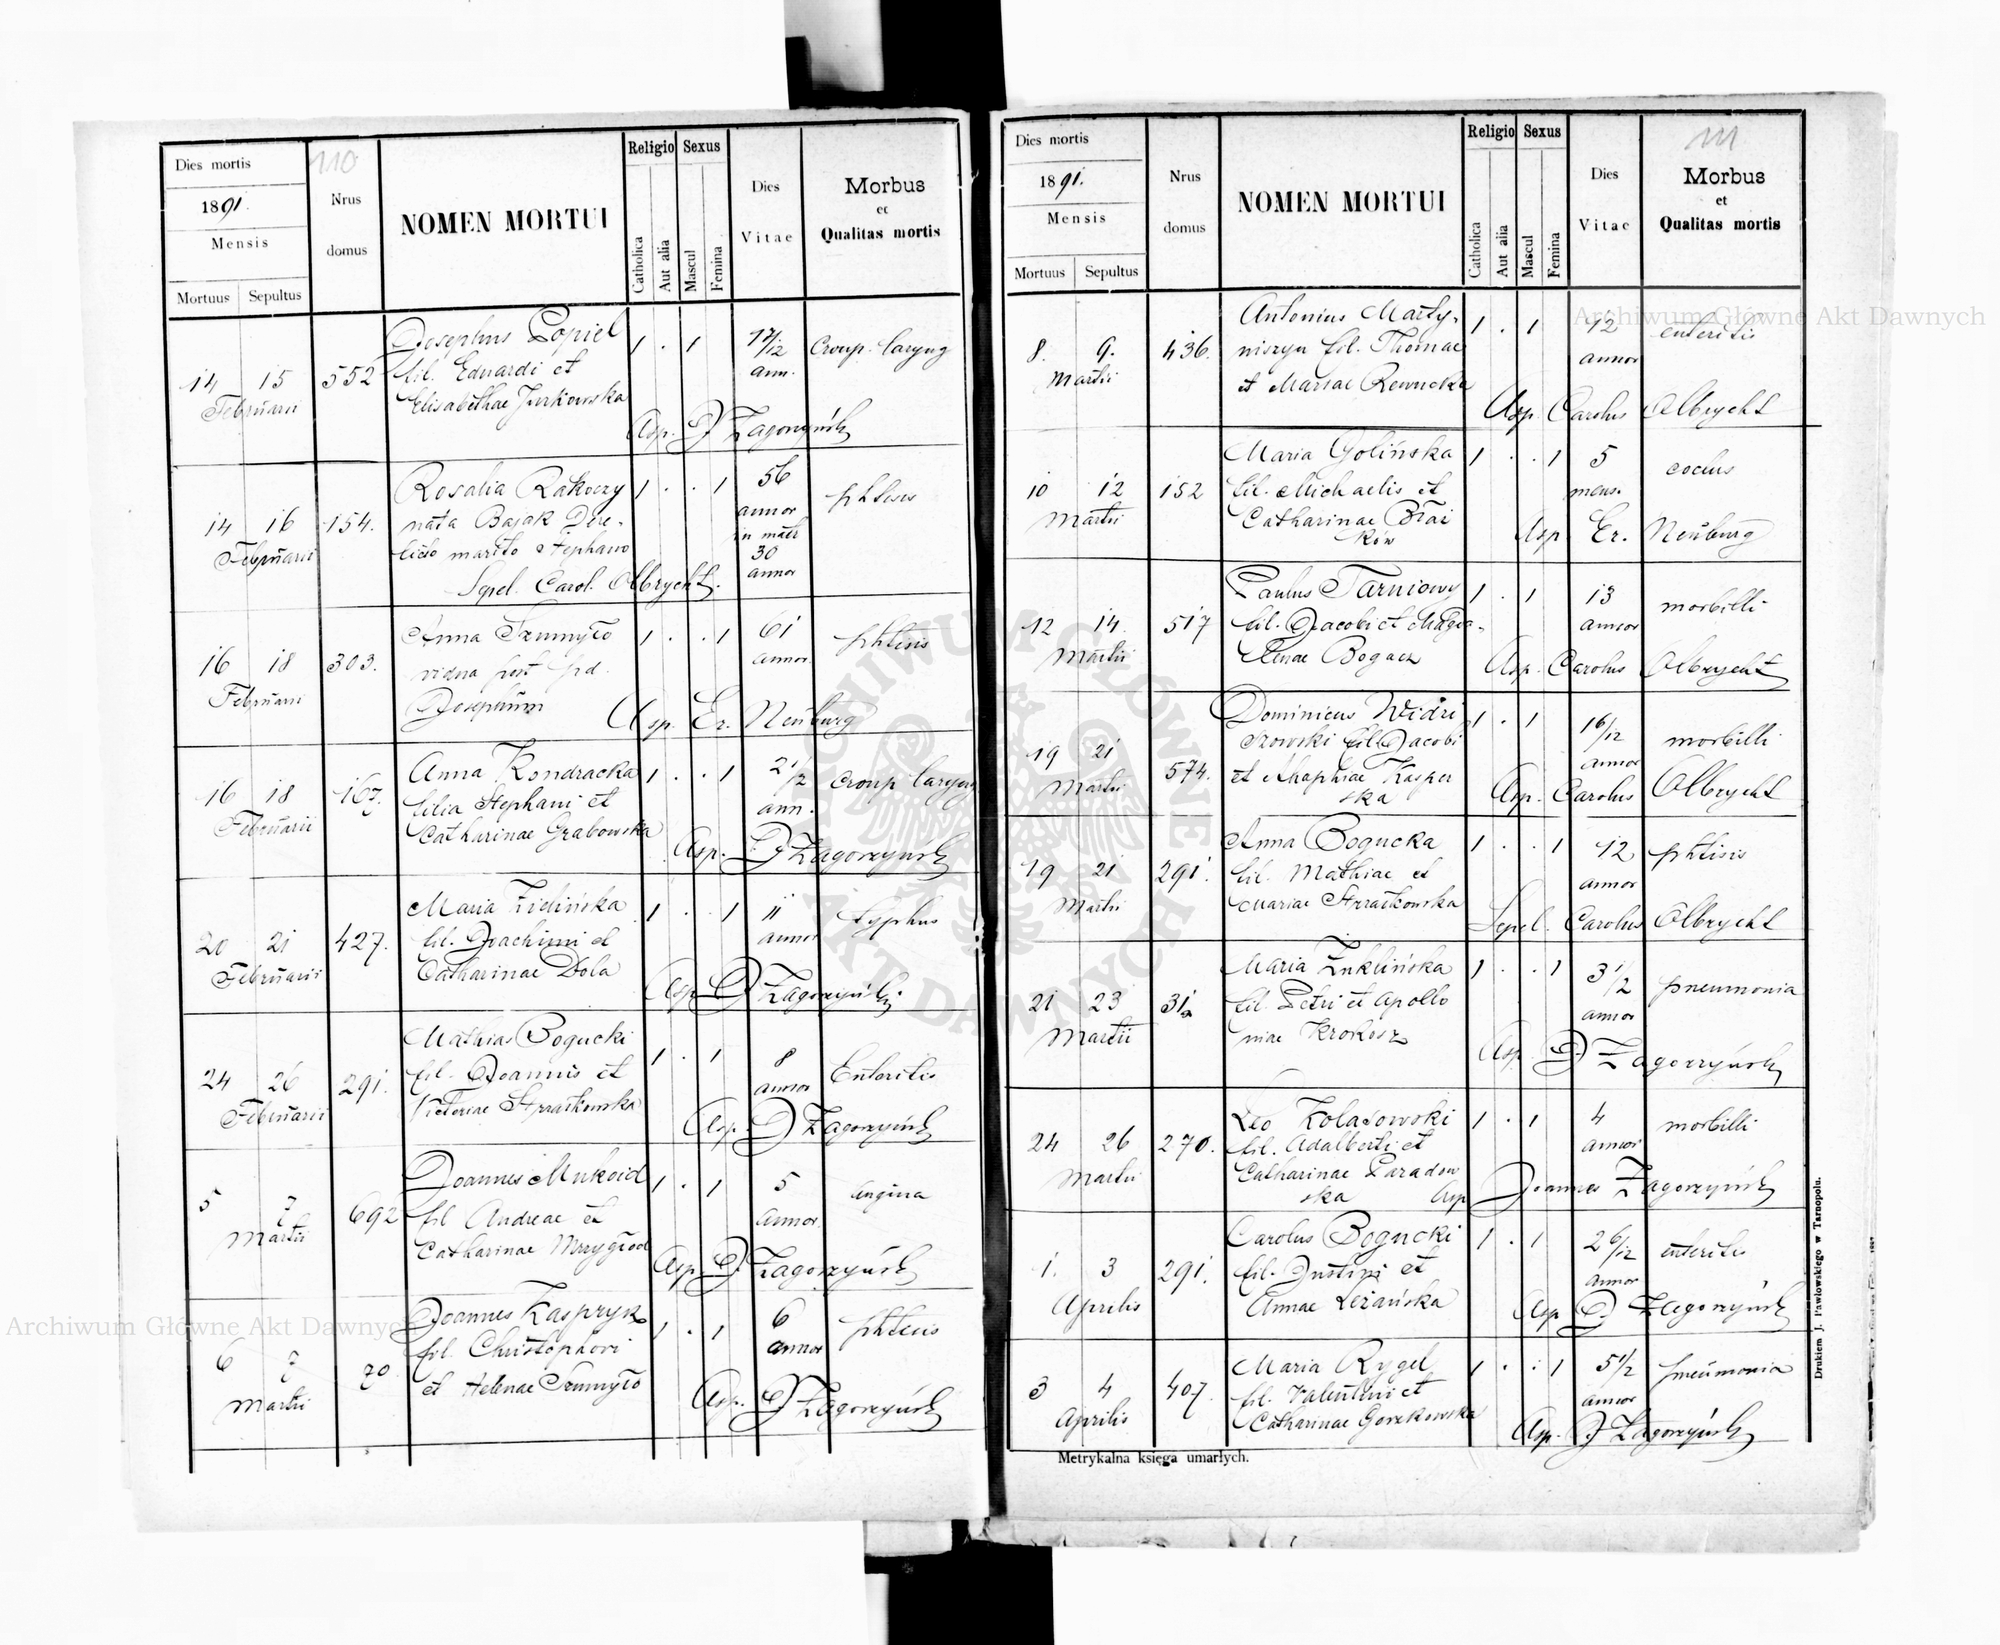 110
Dies mortis
1891.
Mensis
Mortuus Sepultus
Nrus
domus
NOMEN MORTUI
Religio Sexus
Catholica
Aut alia
Mascul
Femina
Dies
Vitae
Morbus
et
Qualitas mortis
14 15 552 Josephus Popiel 1 . 1 Croup laryng
Februarii fil. Eduardi et ann.
Elisabethae Jurkowska
Asp. J Zagorzyński
14 16 154. Rosalia Rakoczy 1 . . 1 56 phtisis
Februarii nata Bajak Dere- annor
licto marito Stephano in matr
30
annor
Sepel. Carol. Olbrycht.
16 18 303. Anna Szumyło 1 . . 1 61 phtisis
Februarii vidua post pd. annor.
Josephum
Asp. Er. Neuburg
16 18 167. Anna Kondracka 1 . . 1 2 1/2 croup laryng
Februarii filia Stephani et ann.
Catharinae Grabowska
Asp. J Zagorzyński
20 21 427. Maria Zielińska 1 . . 1 11 typhus
Februarii fil. Joachimi et annor
Catharinae Dola
Asp J Zagorzyński
24 26 291. Mathias Bogucki 1 . 1 8 Enteritis
Februarii fil. Joannis et annor
Victoriae
Asp. J Zagorzyński
5 7 692 Joannes Mukoid 1 . 1 5 angina
Martii fil Andreae et annor.
Catharinae Mrzygłod
Asp. J. Zagorzyński
6 7 70. Joannes Kaspryk 1 . 1 6 phtisis
Martii fil. Christophori annor
et Helenae Szumyło
Asp. J Zagorzyński
111
Dies mortis
1891.
Mensis
Mortuus Sepultus
Nrus
domus
NOMEN MORTUI
Religio Sexus
Catholica
Aut alia
Mascul
Femina
Dies
Vitae
Morbus
et
Qualitas mortis
8. 9. 436. Antonius Marty- 1 . 1 12 enteritis
Martii niszyn fil. Thomae annor
et Mariae Rewucka
Asp Carolus Olbrycht
10 12 152 Maria Golińska 1 . . 1 5
Martii fil. Michaelis et mens.
Catharinae
Asp Er. Neuburg
12 14. 517 Paulus Tarniowy 1 . 1 13 morbilli
Martii fil. Jacobi et Magda- annor
lenae Bogacz
Asp. Carolus Olbrycht
19 21 574. Dominicus Widri 1 . 1 1 6/12 morbilli
Martii szowski fil Jacobi annor
et Agaphiae Kasper
ska
Asp. Carolus Olbrycht
19 21 291. Anna Bogucka 1 . . 1 12 phtisis
Martii fil. Mathiae et annor
Mariae
Sepel. Carolus Olbrycht
21 23 Maria Zuklińska 1 . . 1 3 1/2 pneumonia
Martii fil. Petri et Apollo annor
niae Krokosz
Asp. J. Zagorzyński
24 26 270. Leo Kolasowski 1 . 1 4 morbilli
Martii fil. Adalberti et annor
Catharinae Paradow
ska
Asp Joannes Zagorzyński
1. 3 291. Carolus Bogucki 1 . 1 2 6/12 enteritis
Aprilis fil. Justini et annor
Annae Leżańska
Asp J. Zagorzyński
3 4 407. Maria Rygel 1 . . 1 5 1/2 pneumonia
Aprilis fil. Valentini et annor
Catharinae Gorzkowska
Asp. J Zagorzyński
Metrykalna księga umarłych.
Drukiem J. Pawłowskiego w Tarnopolu.
Archiwum Główne Akt Dawnych
Archiwum Główne Akt Dawnych
ARCHIWUM GŁÓWNE
AKT DAWNYCH